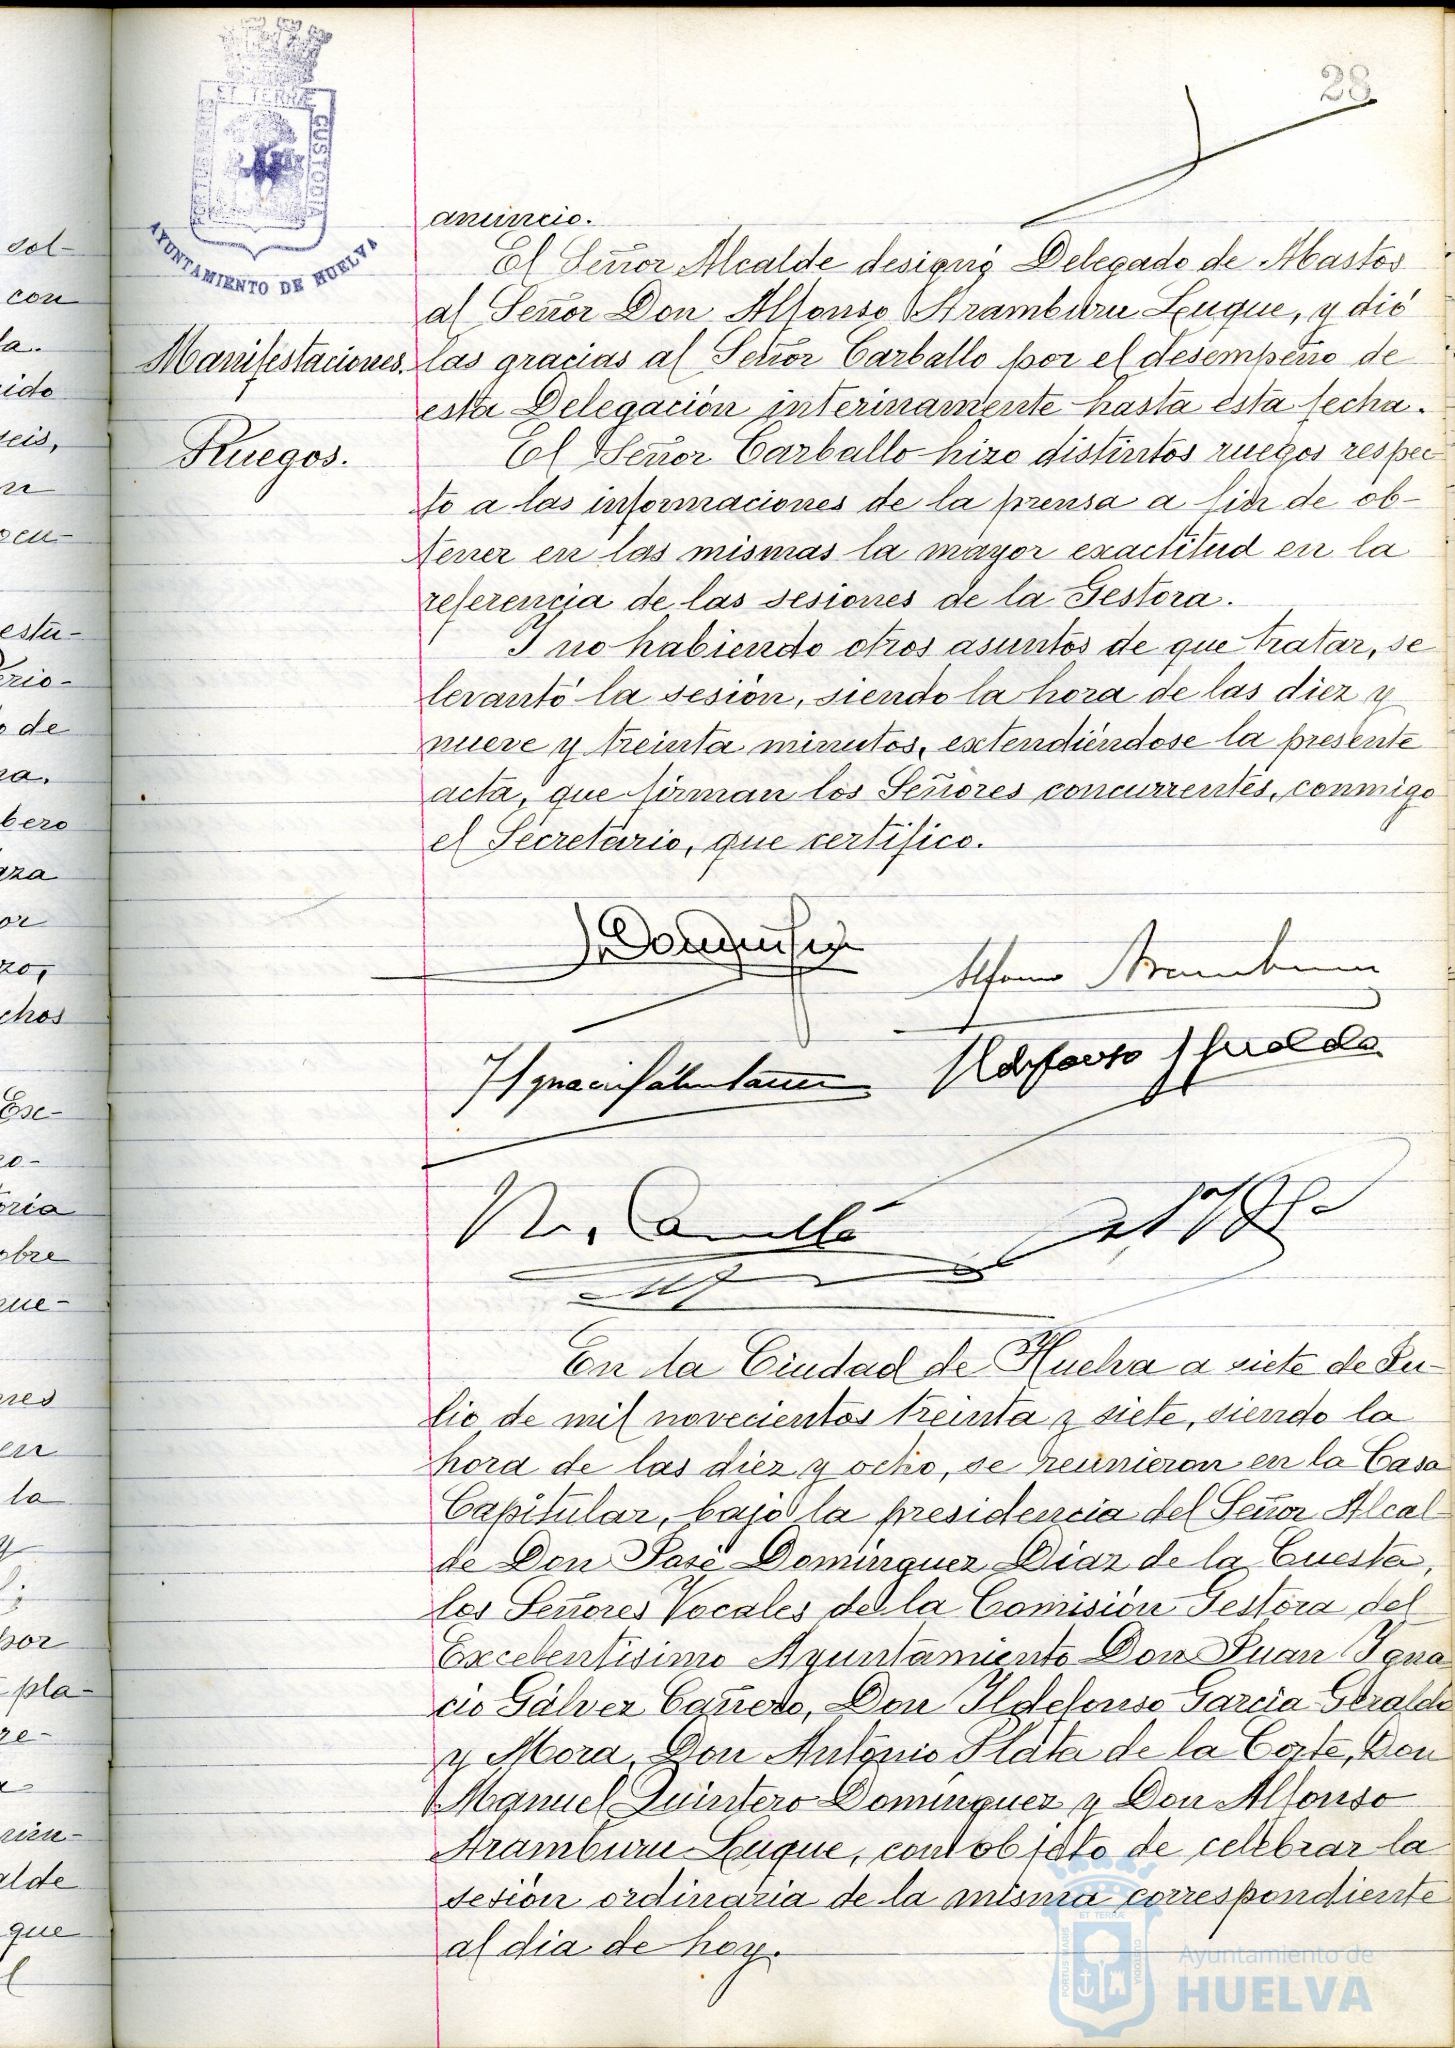 28
ET TERRÆ
CUSTODIA
AYUNTAMIENTO DE HUELVA
anuncio.
El Señor Alcalde designó Delegado de Abastos
al Señor Don Alfonso Aramburu Luque, y dió
Manifestaciones.
las gracias al Señor Carballo por el desempeño de
esta Delegación interinamente hasta esta fecha.
Ruegos.
El Señor Carballo hizo distintos ruegos respec-
to a las informaciones de la prensa a fin de ob-
tener en las mismas la mayor exactitud en la
referencia de las sesiones de la Gestora.
Y no habiendo otros asuntos de que tratar, se
levantó la sesión, siendo la hora de las diez y
nueve y treinta minutos, extendiéndose la presente
acta, que firman los Señores concurrentes, conmigo
el Secretario, que certifico.
Alfonso Aramburu
En la Ciudad de Huelva a siete de Ju-
lio de mil novecientos treinta y siete, siendo la
hora de las diez y ocho, se reunieron en la Casa
Capitular, bajo la presidencia del Señor Alcal-
de Don José Domínguez Díaz de la Cuesta,
los Señores Vocales de la Comisión Gestora del
Excelentísimo Ayuntamiento Don Juan Igna
cio Gálvez Cañero, Don Ildefonso García Geraldo
y Mora, Don Antonio Plata de la Corte, Don
Manuel Quintero Domínguez y Don Alfonso
Aramburu Luque, con objeto de celebrar la
sesión ordinaria de la misma correspondiente
al dia de hoy.
Ayuntamiento de
HUELVA
sol-
con
la.
ido
seis,
ocu-
estu-
erio-
de
bero
or
chos
Esc-
oria
obre
que-
en
la
y
por
pla-
re-
alde
que